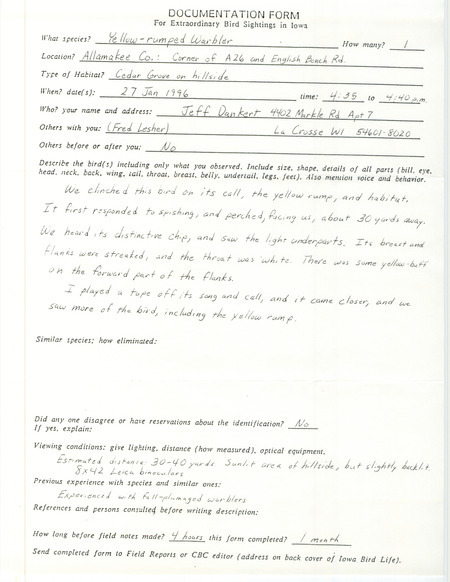 DOCUMENTATION FORM
For Extraordinary Bird Sightings in Iowa
What species? Yellow-rumped Warbler How many? 1
Location? Allamakee Co.: Corner of A26 and English Bench Rd.
Type of Habitat? Cedar Grove on hillside
When? date(s): 27 Jan 1996 time: 4:35 to 4:40 p.m.
Who? your name and address: Jeff Dankert 4402 Markle Rd Apt 7
Others with you: (Fred Lesher) La Crosse WI 54601-8020
Others before or after you: No
Describe the bird(s) including only what you observed. Include size, shape, details of all parts (bill, eye,
head, neck, back, wing, tail, throat, breast, belly, undertail, legs, feet). Also mention voice and behavior.
We clinched this bird on its call, the yellow rump, and habitat.
It first responded to spishing, and perched, facing us, about 30 yards away.
We heard its distinctive chip, and saw the light underparts. Its breast and
flanks were streaked, and the throat was white. There was some yellow-buff
on the forward part of the flanks.
I played a tape off its song and call, and it came closer, and we
saw more of the bird, including the yellow rump.
Similar species; how eliminated:
Did any one disagree or have reservations about the identification? No
If yes, explain:
Viewing conditions: give lighting, distance (how measured), optical equipment,
Estimated distance 30-40 yards Sunlit area of hillside, but slightly backlit.
8x42 Leica binoculars
Previous experience with species and similar ones:
Experienced with full-plumaged warblers
References and persons consulted before writing description:
How long before field notes made? 4 hours this form completed? 1 month
Send completed form to Field Reports or CBC editor (address on back cover of Iowa Bird Life).